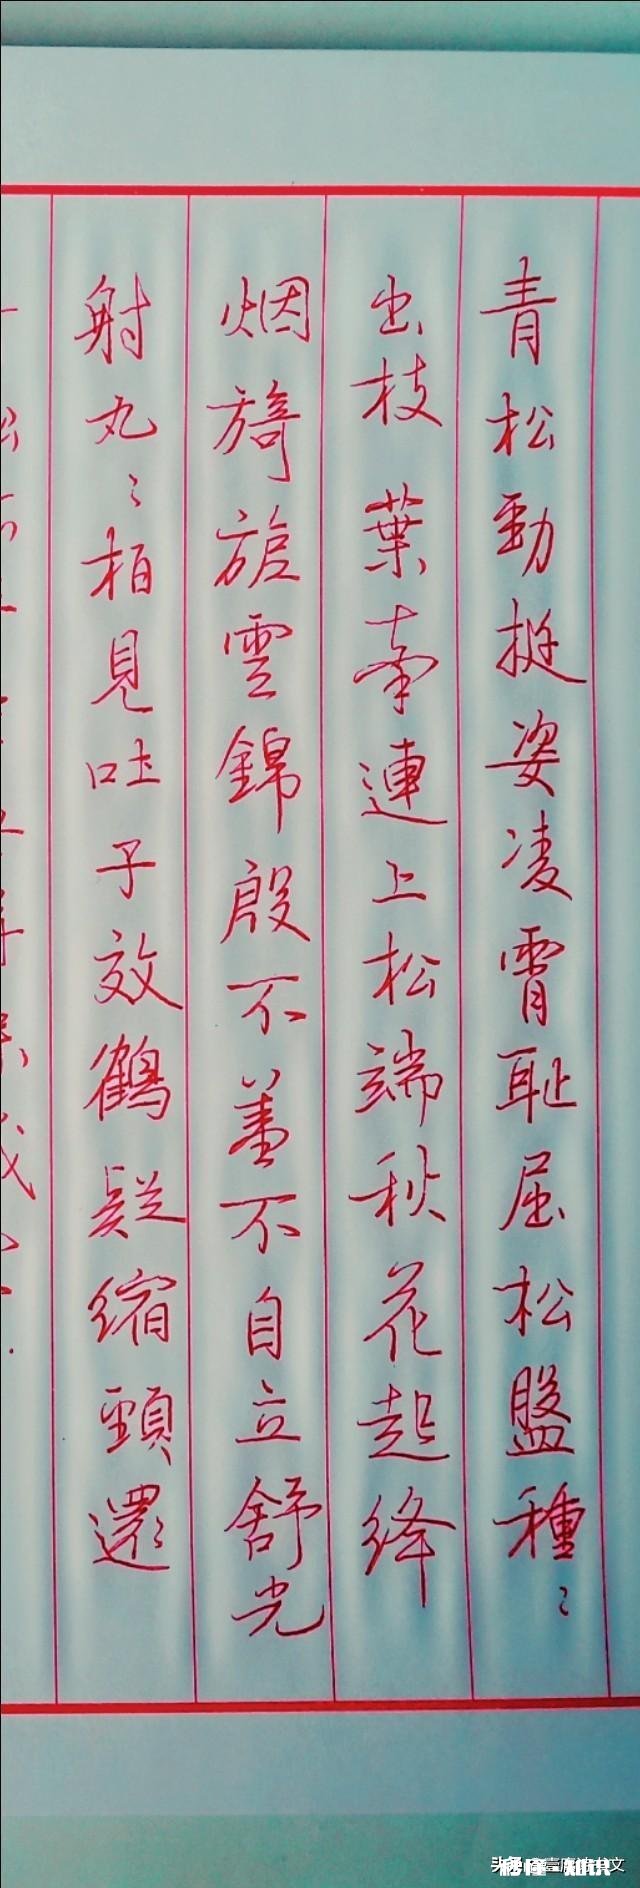 青松勁挺姿凌霄耻屈松盤種〻
出枝葉牵連上松端秋花起绛
烟旖旎雲錦殷不羞不自立舒光
射丸〻柏見吐子效鶴疑缩頸還
头条
知识